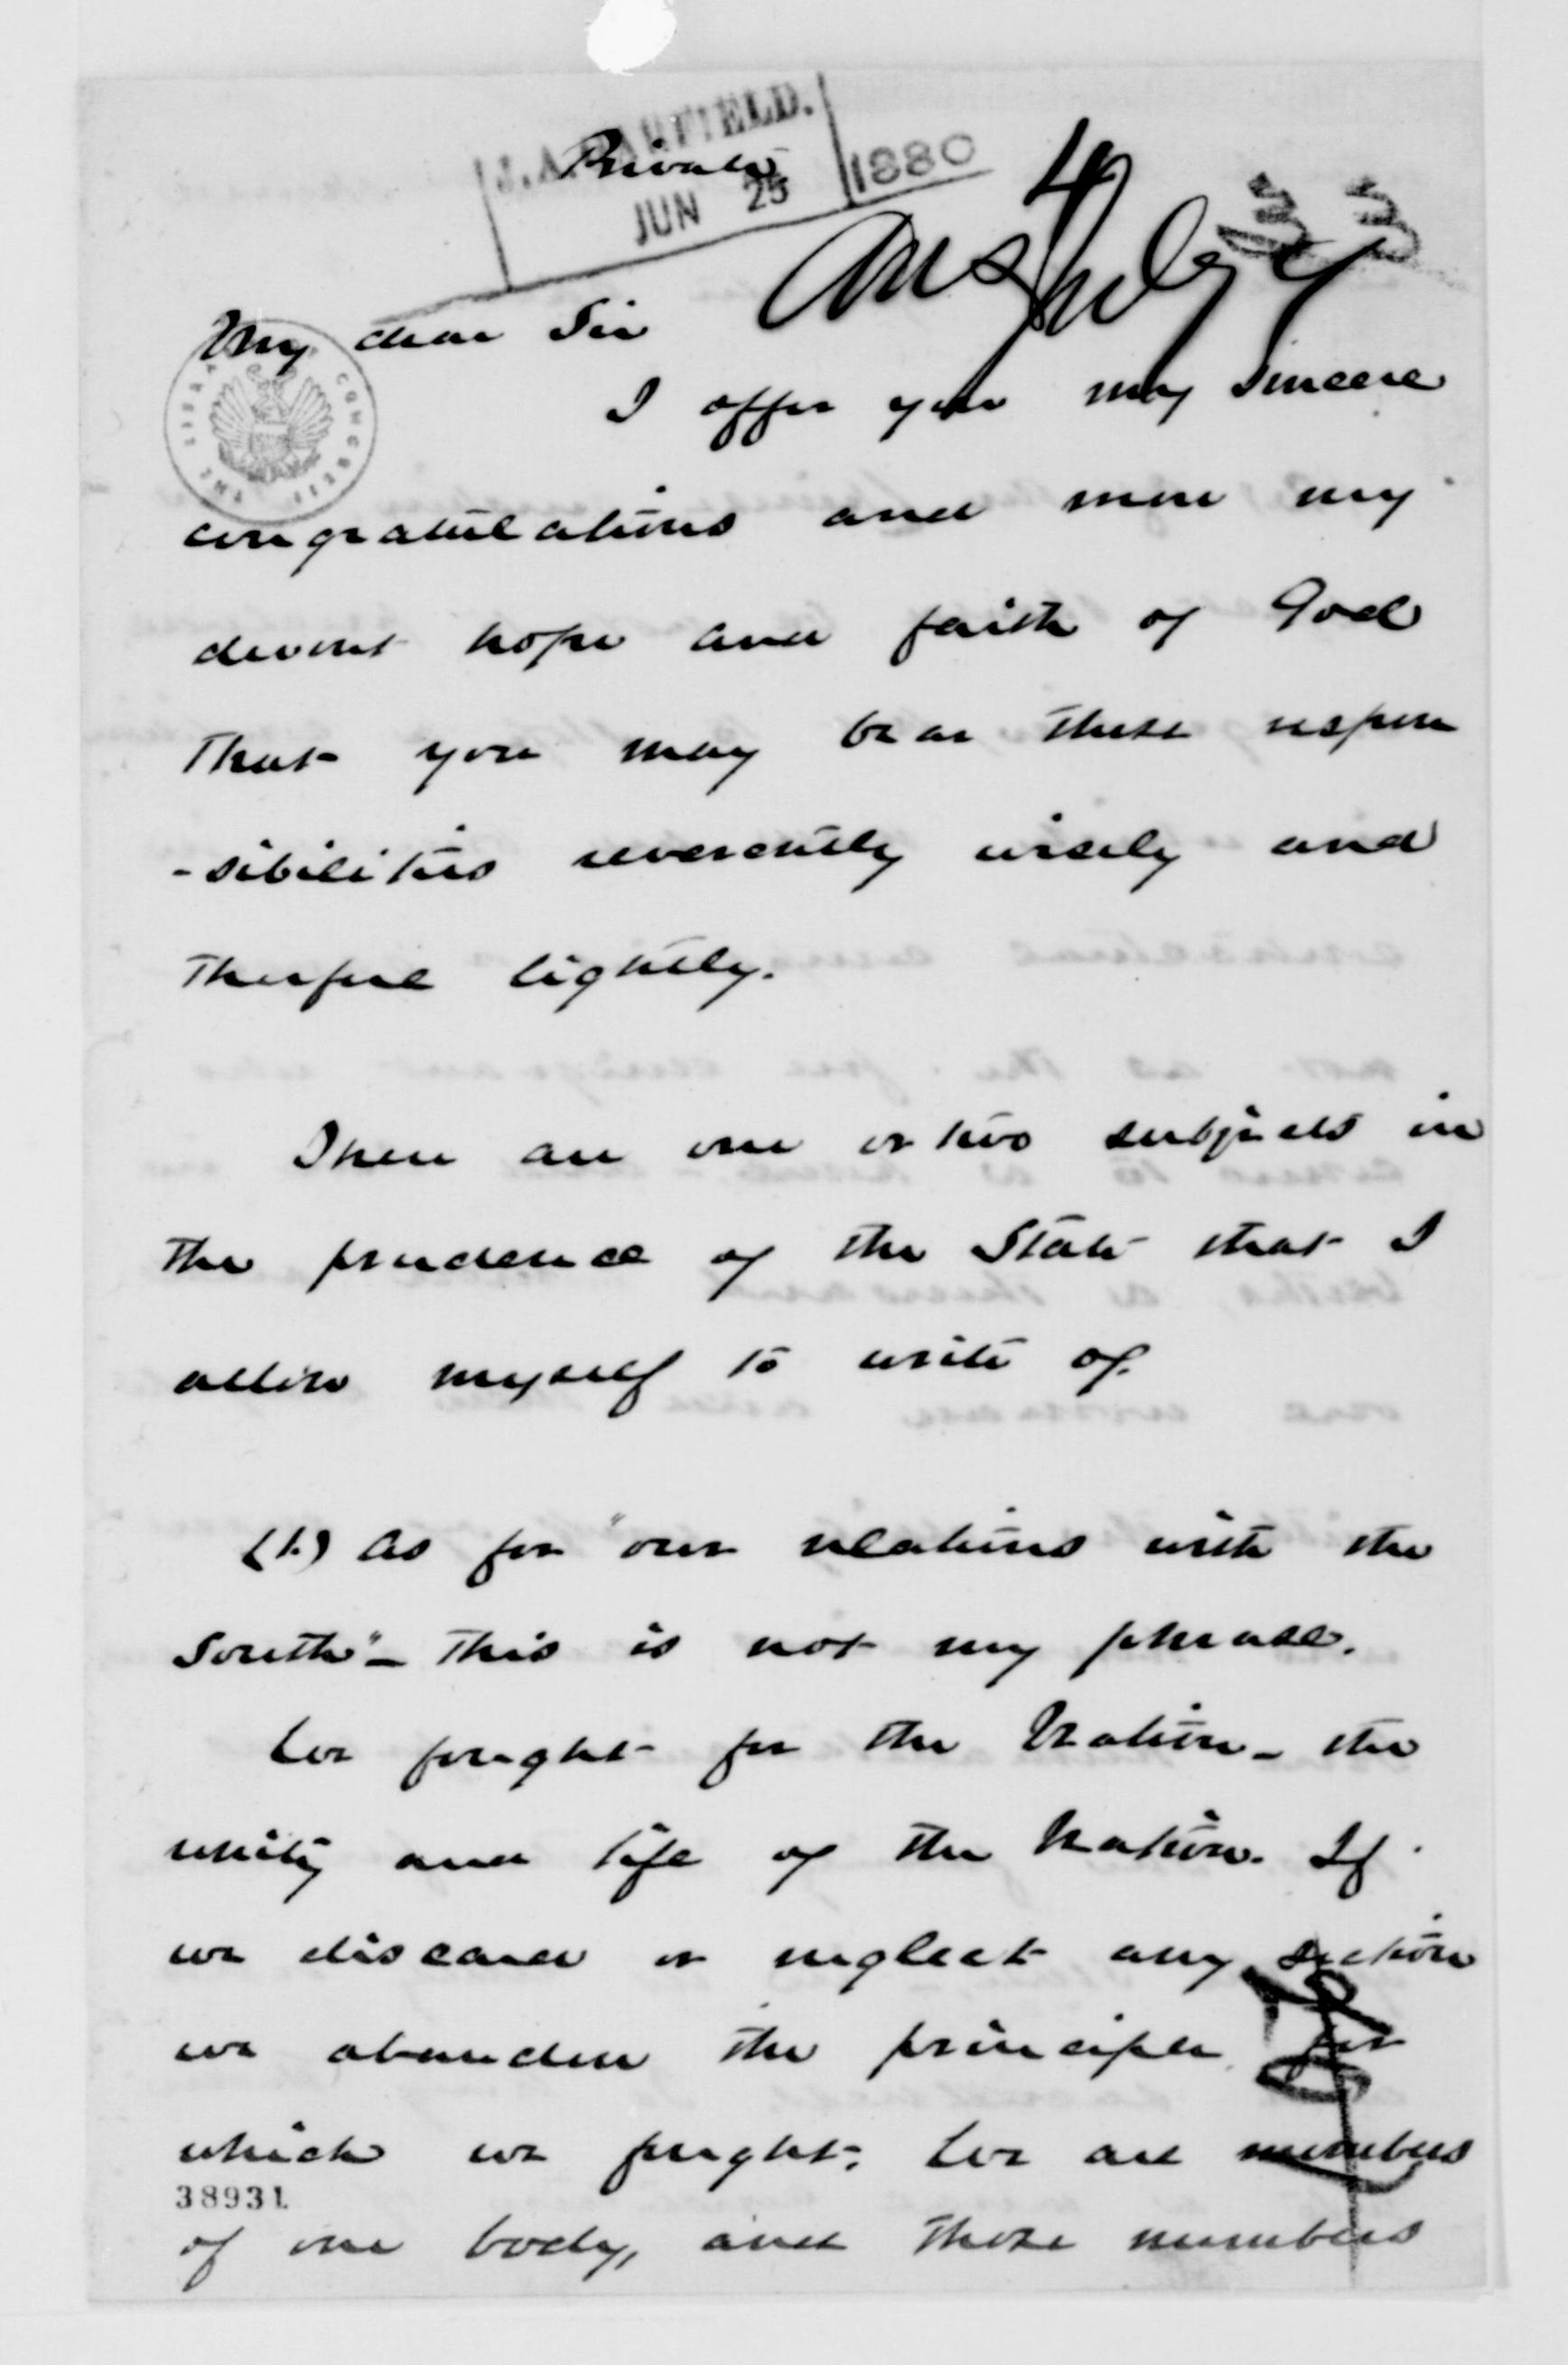 J. A. GARFIELD.
Private
JUN 25 1880
Ans July
My dear Sir
I offer you my sincere
congratulations and more my
devout hope and faith of God
that you may bear these respon
-sibilities reverently wisely and
therefore lightly.
There are one or two subjects in
the prudence of the State that I
allow myself to write of.
(1.) As for "our relations with the
South" - This is not my phrase.
We fought for the Nation - the
unity and life of the Nation. If
we discard or neglect any section
we abandon the principle for
which we fought. We are members
38931
of one body, and those members